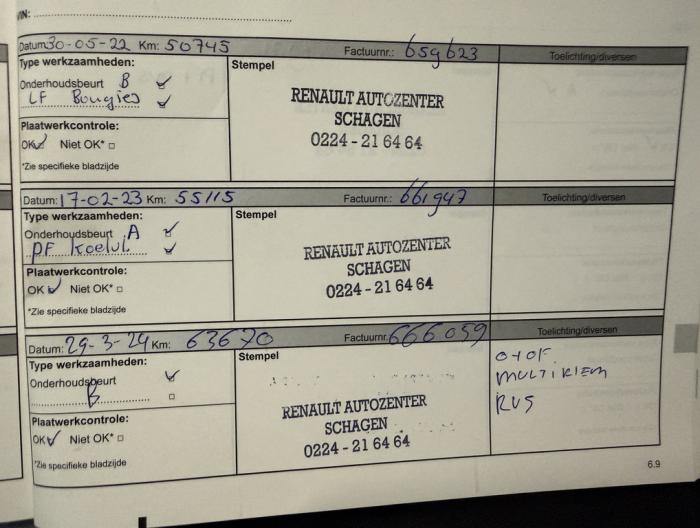 VIN:
Datum: 30-05-22 Km: 50745 Factuurnr.: 659623 Toelichting/diversen
Type werkzaamheden: Stempel
Onderhoudsbeurt B
LF Bougies
RENAULT AUTOZENTER
SCHAGEN
0224-21 64 64
Plaatwerkcontrole:
OK Niet OK*
*Zie specifieke bladzijde
Datum: 17-02-23 Km: 55115 Factuurnr.: 661947 Toelichting/diversen
Type werkzaamheden: Stempel
Onderhoudsbeurt A
PF koelvl.
RENAULT AUTOZENTER
SCHAGEN
0224-21 64 64
Plaatwerkcontrole:
OK Niet OK*
*Zie specifieke bladzijde
Datum: 29-3-24 Km: 63670 Factuurnr. 666059 Toelichting/diversen
Type werkzaamheden: Stempel
Onderhoudsbeurt
B
O+OF
MULTIRIEM
RVS
RENAULT AUTOZENTER
SCHAGEN
0224-21 64 64
Plaatwerkcontrole:
OK Niet OK*
*Zie specifieke bladzijde
6.9